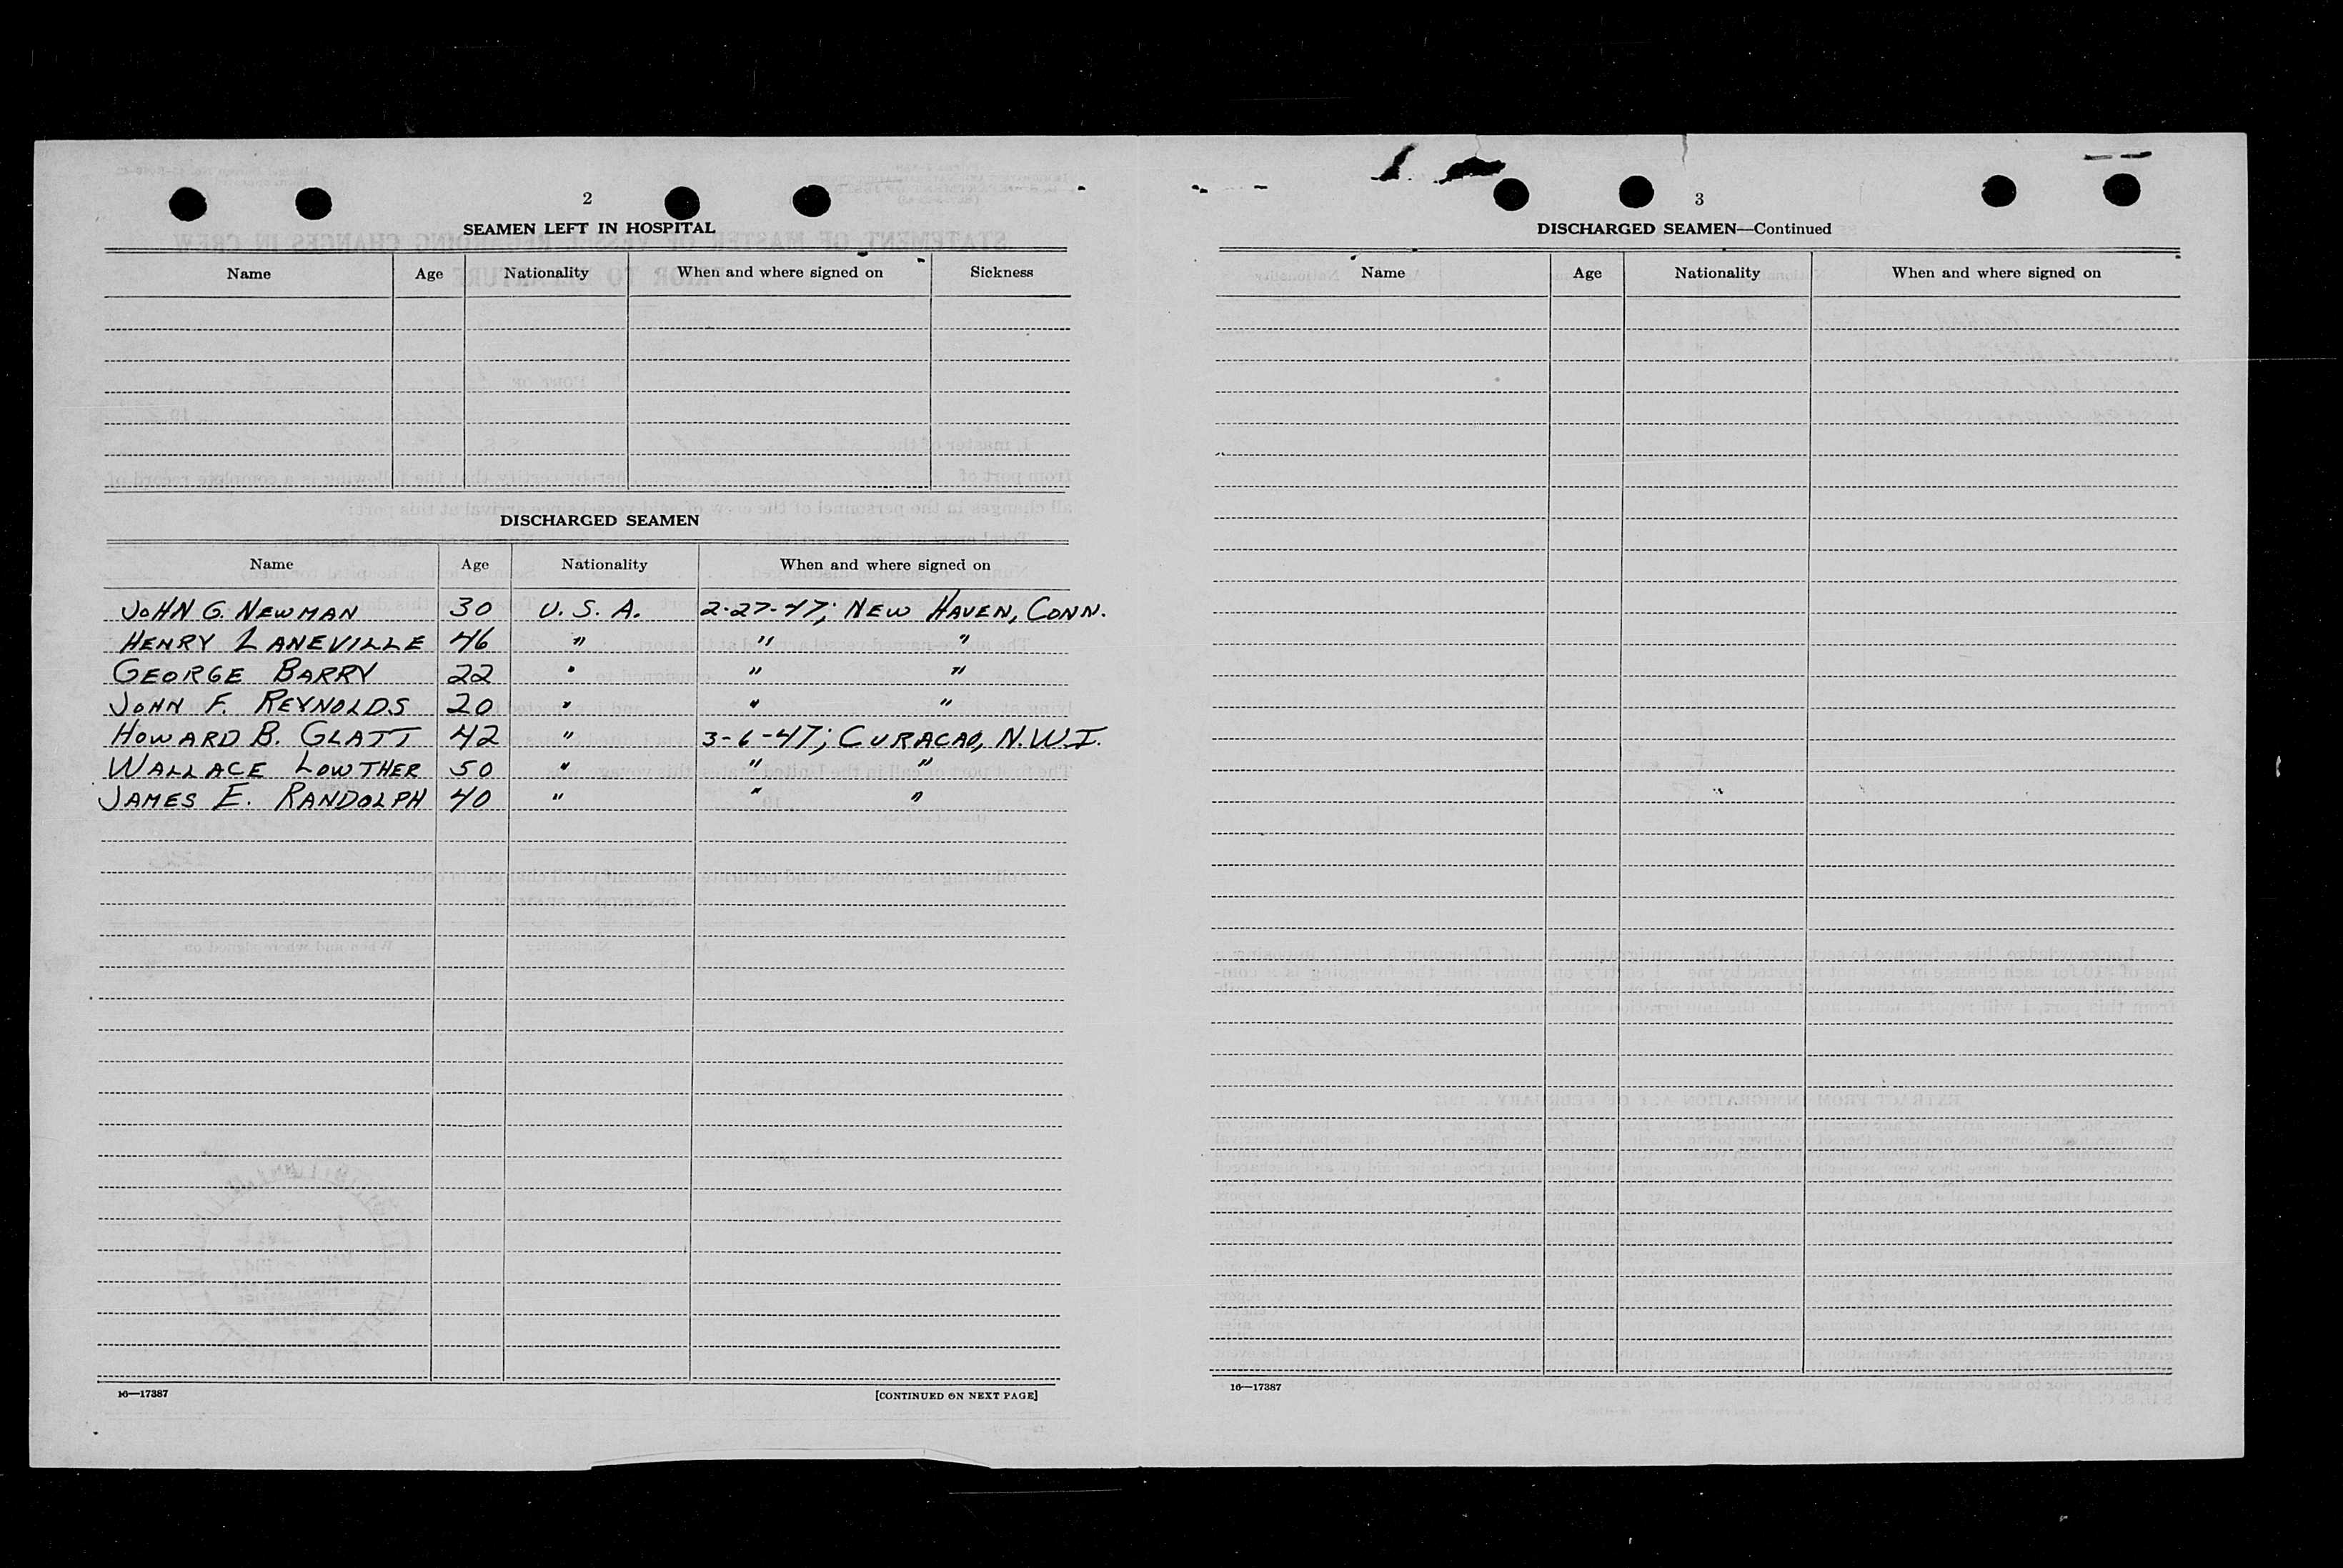 2
SEAMEN LEFT IN HOSPITAL
Name Age Nationality When and where signed on Sickness
DISCHARGED SEAMEN
Name Age Nationality When and where signed on
JOHN G. NEWMAN 30 U. S. A. 2-27-47; NEW HAVEN, CONN.
HENRY LANEVILLE 46 " " "
GEORGE BARRY 22 " " "
JOHN F. REYNOLDS 20 " " "
HOWARD B. GLATT 42 " 3-6-47; CURACAO, N.W.I.
WALLACE LOWTHER 50 " " "
JAMES E. RANDOLPH 40 " " "
16—17387 [CONTINUED ON NEXT PAGE]
3
DISCHARGED SEAMEN—Continued
Name Age Nationality When and where signed on
16—17387